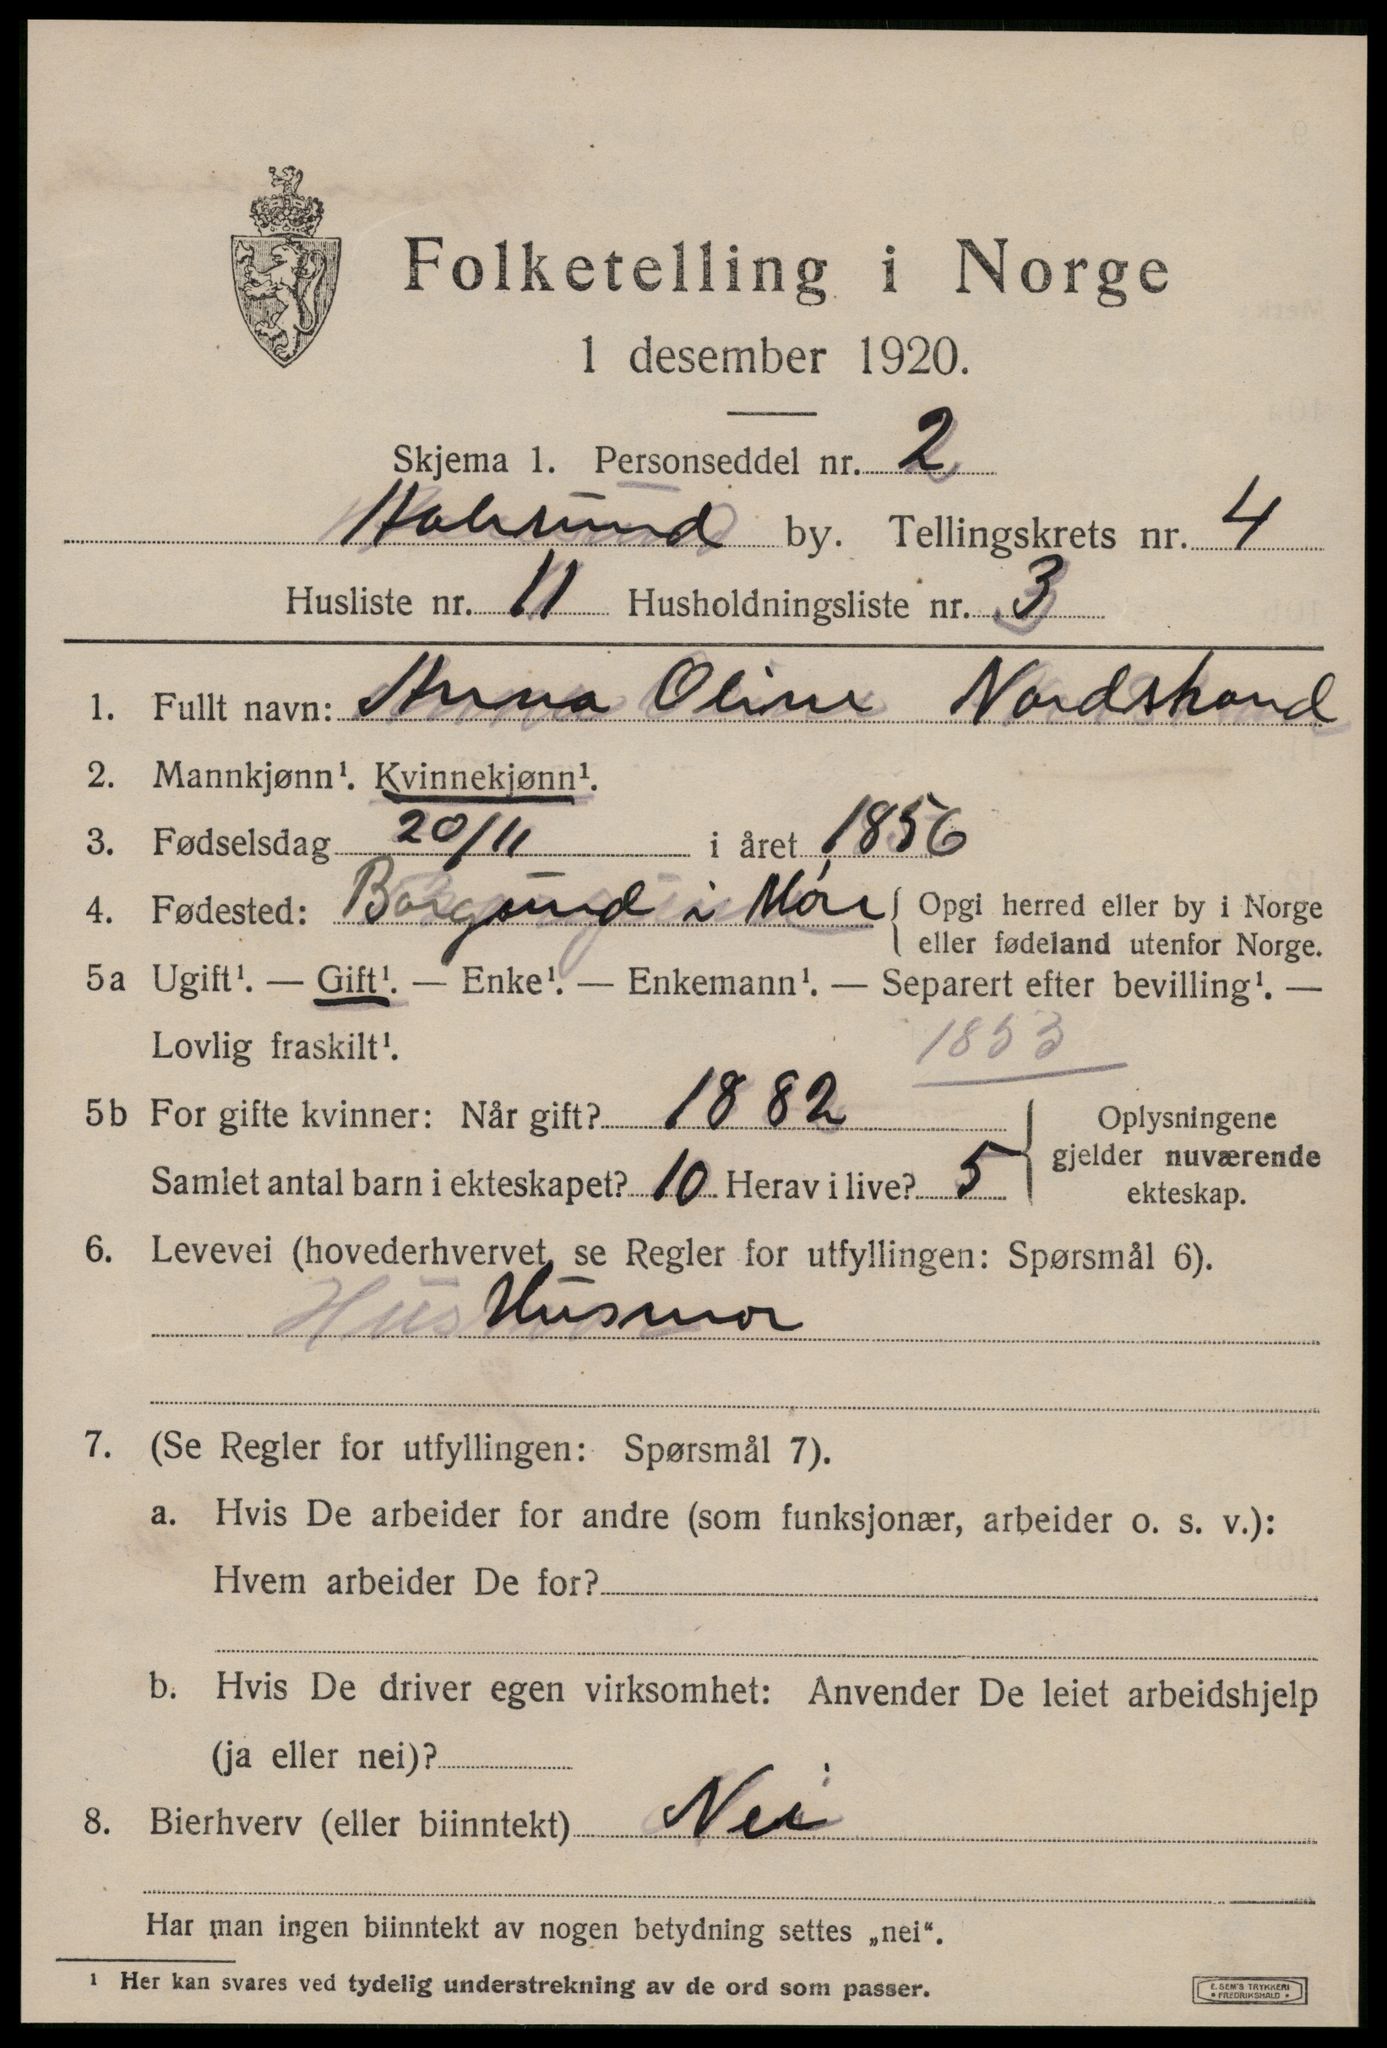 Folketelling i Norge
1 desember 1920.
Skjema 1. Personseddel nr. 2
Aalesund by. Tellingskrets nr. 4
Husliste nr. 11 Husholdningsliste nr. 3
1. Fullt navn: Anna Oline Nordstrand
2. Mannkjønn¹. Kvinnekjønn¹.
3. Fødselsdag 20/11 i året 1856
4. Fødested: Borgsund i Møre { Opgi herred eller by i Norge
eller fødeland utenfor Norge.
5a Ugift¹. — Gift¹. — Enke¹. — Enkemann¹. — Separert efter bevilling¹. —
Lovlig fraskilt¹. 1853
5b For gifte kvinner: Når gift? 1882
Samlet antal barn i ekteskapet? 10 Herav i live? 5
Oplysningene
gjelder nuværende
ekteskap.
6. Levevei (hovederhvervet, se Regler for utfyllingen: Spørsmål 6).
Husmor
7. (Se Regler for utfyllingen: Spørsmål 7).
a. Hvis De arbeider for andre (som funksjonær, arbeider o. s. v.):
Hvem arbeider De for?
b. Hvis De driver egen virksomhet: Anvender De leiet arbeidshjelp
(ja eller nei)?
8. Bierhverv (eller biinntekt) Nei
Har man ingen biinntekt av nogen betydning settes „nei“.
¹ Her kan svares ved tydelig understrekning av de ord som passer.
E. SEM'S TRYKKERI
FREDRIKSHALD